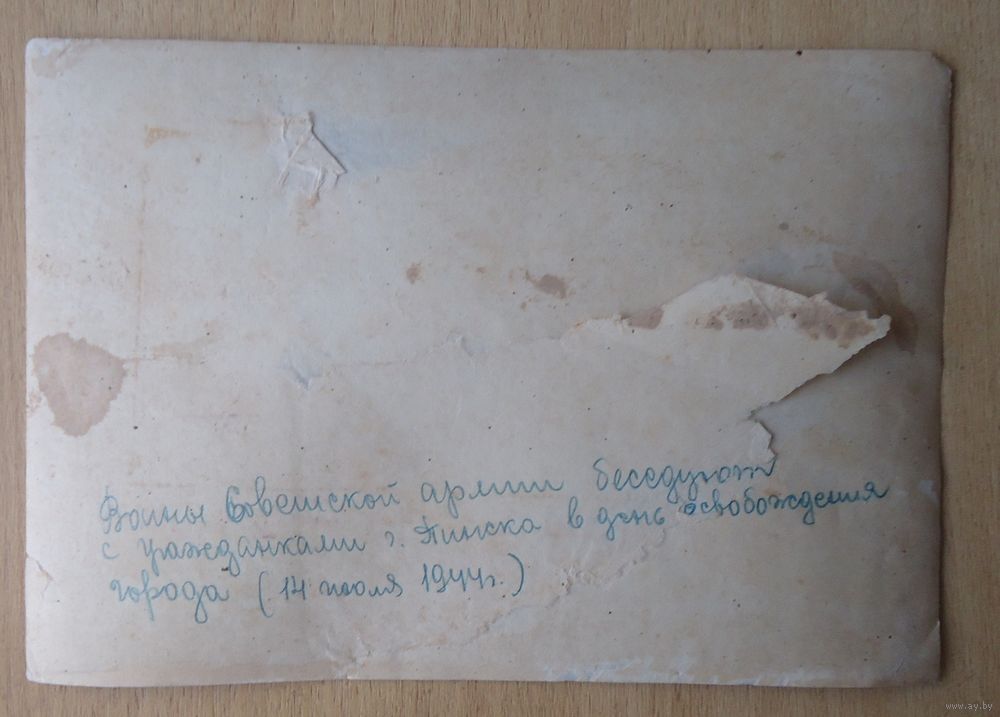 Воины Советской армии беседуют
с гражданками г. Пинска в день освобождения
города (14 июля 1944г.)
www.ay.by